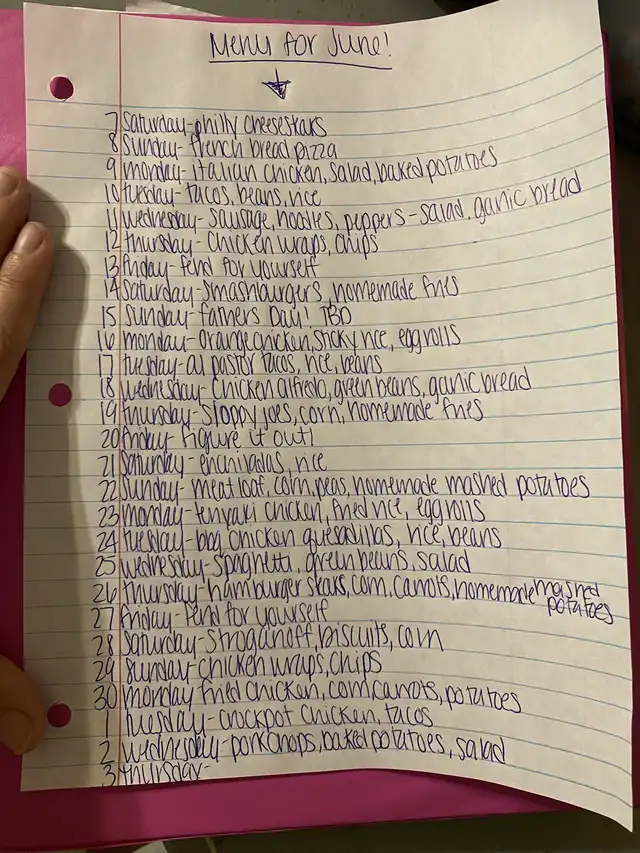 Menu for June!
7 Saturday-philly cheesesteaks
8 Sunday-french bread pizza
9 monday-italian chicken, salad, baked potatoes
10 tuesday-tacos, beans, rice
11 wednesday-sausage, noodles, peppers-salad, garlic bread
12 thursday-chicken wraps, chips
13 friday-fend for yourself
14 saturday-smashburgers, homemade fries
15 sunday-fathers Day! TBD
16 monday-orange chicken, sticky rice, eggrolls
17 tuesday-al pastor tacos, rice, beans
18 wednesday-chicken alfredo, green beans, garlic bread
19 thursday-sloppy joes, corn, homemade fries
20 friday-figure it out!
21 saturday-enchiladas, rice
22 sunday-meatloaf, corn, peas, homemade mashed potatoes
23 monday-teriyaki chicken, fried rice, eggrolls
24 tuesday-bbq chicken quesadillas, rice, beans
25 wednesday-spaghetti, green beans, salad
26 thursday-hamburger steaks, corn, carrots, homemade mashed potatoes
27 friday-fend for yourself
28 saturday-stroganoff, biscuits, corn
29 sunday-chicken wraps, chips
30 monday fried chicken, corn, carrots, potatoes
1 tuesday-crockpot chicken, tacos
2 wednesday-porkchops, baked potatoes, salad
3 thursday-